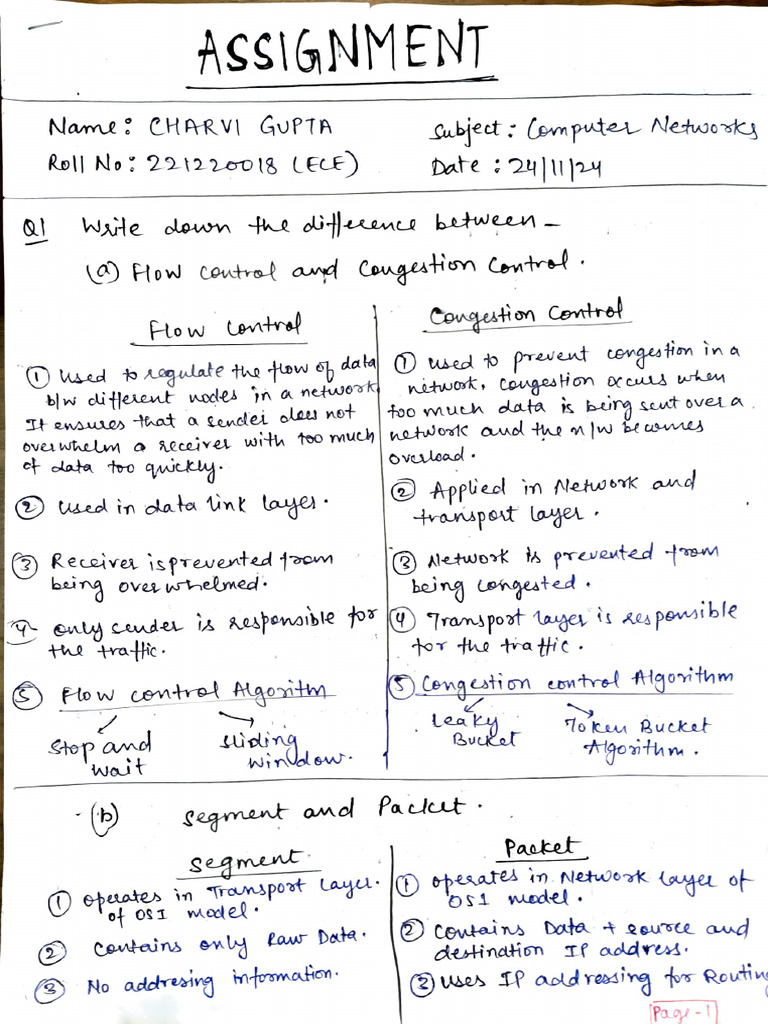 ASSIGNMENT
Name: CHARVI GUPTA
Subject: Computer Networks
Roll No: 221220018 (ECE)
Date: 24/11/24
Q1 Write down the difference between -
(a) Flow control and Congestion Control.
Flow Control
① Used to regulate the flow of data
b/w different nodes in a network
It ensures that a sender does not
overwhelm a receiver with too much
of data too quickly.
② Used in data link layer.
③ Receiver is prevented from
being overwhelmed.
④ Only sender is responsible for
the traffic.
⑤ Flow control Algorithm
Stop and
wait
Sliding
Window.
Congestion Control
① Used to prevent congestion in a
network, Congestion occurs when
too much data is being sent over a
network and the n/w becomes
overload.
② Applied in Network and
transport layer.
③ Network is prevented from
being congested.
④ Transport layer is responsible
for the traffic.
⑤ Congestion control Algorithm
Leaky
Bucket
Token Bucket
Algorithm.
(b) Segment and Packet.
Segment
① Operates in Transport Layer.
of OSI model.
② Contains only Raw Data.
③ No addresing information.
Packet
① Operates in Network Layer of
OSI model.
② Contains Data + source and
destination IP address.
③ Uses IP addressing for Routing
Page-1